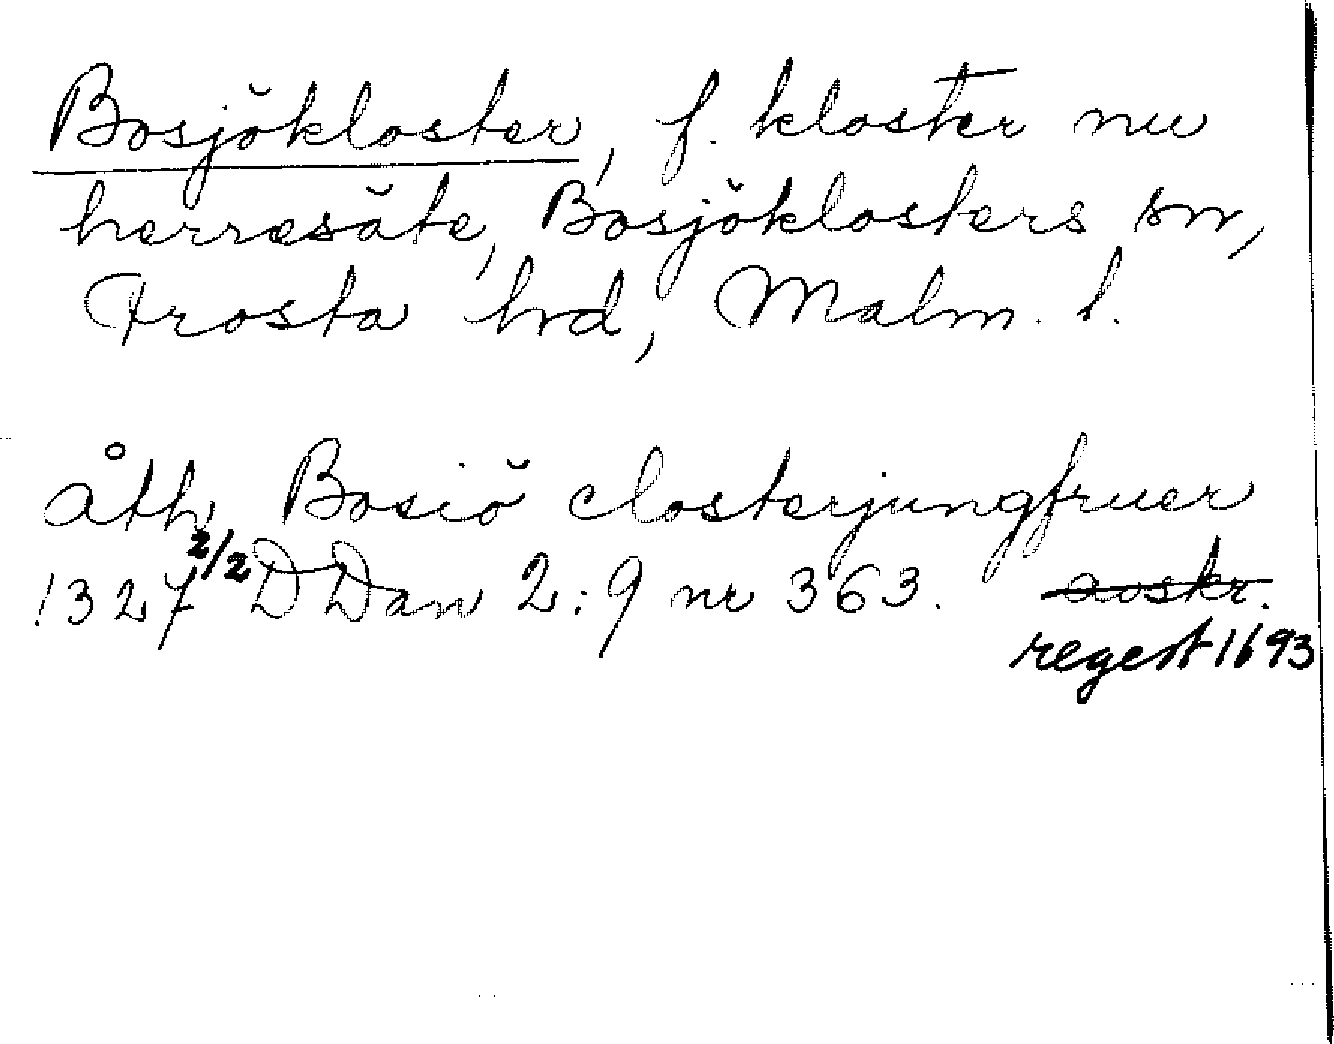 Bosjökloster, f. kloster nu
herresäte, Bosjöklosters sn,
Frosta hrd, Malm. l.
åth Bosiö closterjungfruer
1327 2/2 DDan 2:9 nr 363. avskr.
regest 1693